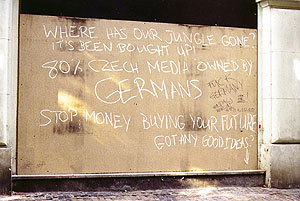 WHERE HAS OUR JUNGLE GONE?
IT'S BEEN BOUGHT UP!
80% CZECH MEDIA OWNED BY
GERMANS
STOP MONEY BUYING YOUR FUTURE
GOT ANY GOOD IDEAS?